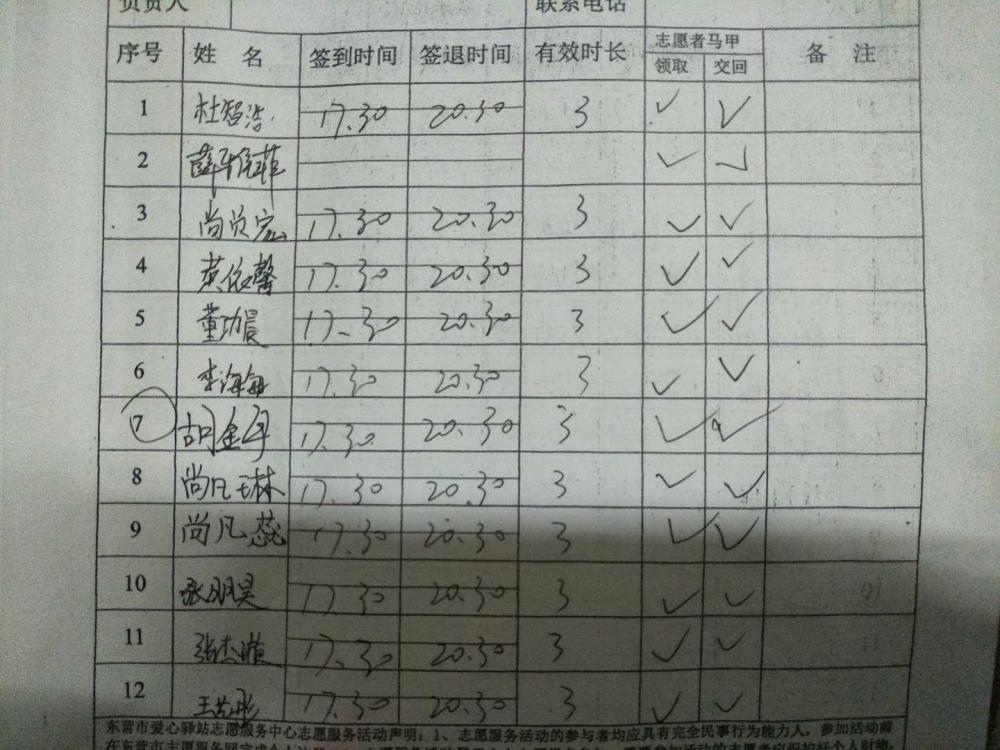 负责人 联系电话
序号 姓 名 签到时间 签退时间 有效时长 志愿者马甲 备 注
领取 交回
1 杜智浩 17.30 20.30 3 ✓ ✓
2 ✓ ✓
3 尚贞宏 17.30 20.30 3 ✓ ✓
4 黄依馨 17.30 20.30 3 ✓ ✓
5 董功晨 17.30 20.30 3 ✓ ✓
6 李海梅 17.30 20.30 3 ✓ ✓
7 胡金 17.30 20.30 3 ✓ ✓
8 尚凡琳 17.30 20.30 3 ✓ ✓
9 尚凡蕊 17.30 20.30 3 ✓ ✓
10 张明昊 17.30 20.30 3 ✓ ✓
11 张杰 17.30 20.30 3 ✓ ✓
12 王艺彤 17.30 20.30 3 ✓ ✓
东营市爱心驿站志愿服务中心志愿服务活动声明：1、志愿服务活动的参与者均应具有完全民事行为能力人，参加活动前